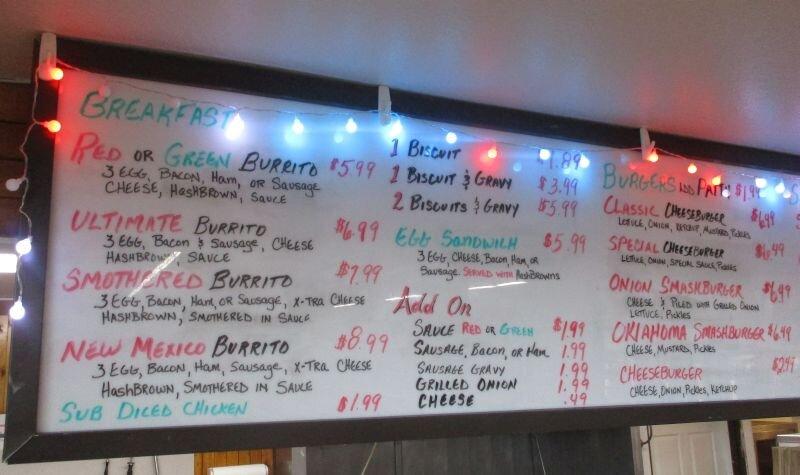 BREAKFAST
RED OR GREEN BURRITO $5.99
3 EGG, BACON, Ham, OR SAUSAGE
CHEESE, HASHBROWN, SAUCE
ULTIMATE BURRITO $6.99
3 EGG, BACON & SAUSAGE, CHEESE
HASHBROWN, SAUCE
SMOTHERED BURRITO $7.99
3 EGG, BACON, HAM, OR SAUSAGE, X-TRA CHEESE
HASHBROWN, SMOTHERED IN SAUCE
NEW MEXICO BURRITO $8.99
3 EGG, BACON, HAM, SAUSAGE, X-TRA CHEESE
HASHBROWN, SMOTHERED IN SAUCE
SUB DICED CHICKEN $1.99
1 BISCUIT 1.89
1 BISCUIT & GRAVY $3.99
2 BISCUITS & GRAVY $5.99
EGG SANDWICH $5.99
3 EGG, CHEESE, BACON, HAM, OR
SAUSAGE. SERVED WITH HASHBROWNS
Add On
SAUCE RED OR GREEN $1.99
SAUSAGE, BACON, OR HAM 1.99
SAUSAGE GRAVY 1.99
GRILLED ONION 1.99
CHEESE .49
BURGERS ADD PATTY $1.99
CLASSIC CHEESEBURGER $6.99
LETTUCE, ONION, KETCHUP, MUSTARD, PICKLES
SPECIAL CHEESEBURGER $6.49
LETTUCE, ONION, SPECIAL SAUCE, PICKLES
ONION SMASHBURGER $6.99
CHEESE & PILED WITH GRILLED ONION
LETTUCE, PICKLES
OKLAHOMA SMASHBURGER $6.49
CHEESE, MUSTARD, PICKLES
CHEESEBURGER
CHEESE, ONION, PICKLES, KETCHUP